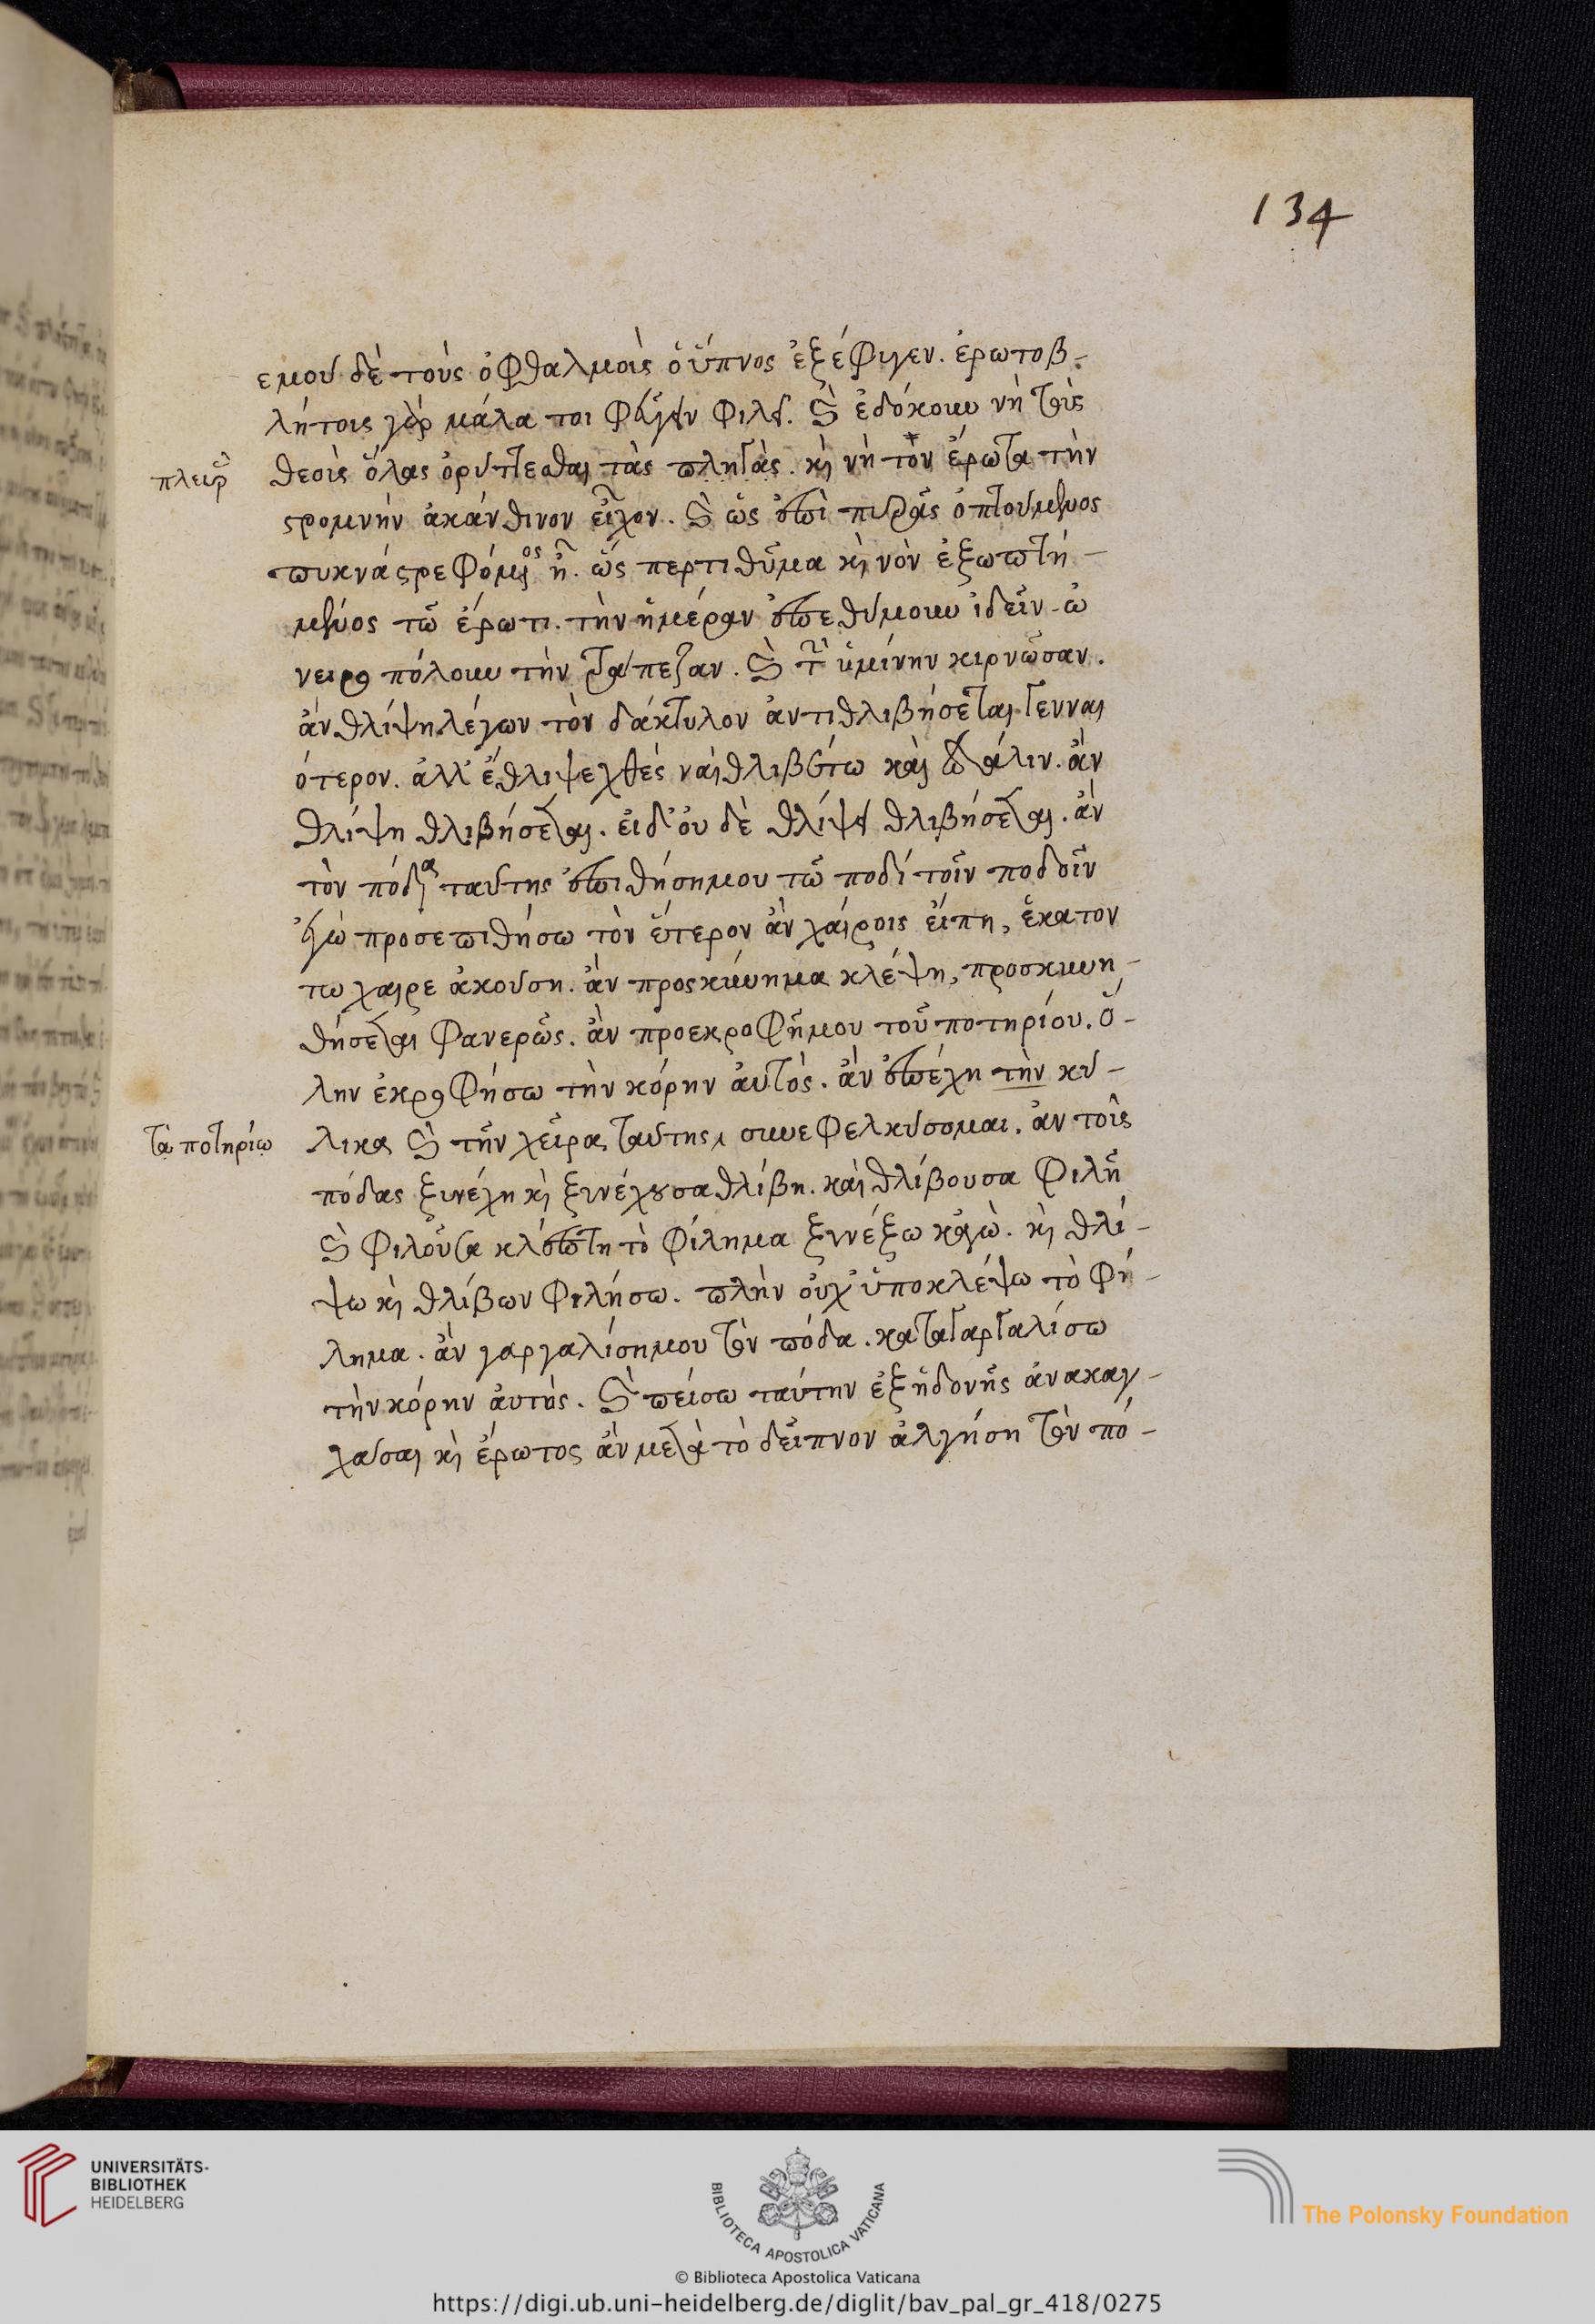 134
εμου δὲ τοὺς ὀφθαλμοὺς ὁ ὕπνος ἐξέφυγεν. ἐρωτοβ-
λήτοις γὰρ μάλα τοι φεύγειν φιλεῖ. καὶ ἐδόκουν νὴ τοὺς
πλευρὰς
θεοὺς ὅλας ὀρύττεσθαι τὰς πληγὰς. καὶ νὴ τὸν ἔρωτα τὴν
στρομνὴν ἀκάνθινον εἶχον. καὶ ὡς ἐπὶ πυρᾶς ὀπτούμενος
πυκνά στρεφόμενος ἦ. ὡς περτιθῦμα καὶ νὸν ἐξωπτη-
μένος τῶ ἔρωτι. τὴν ἡμέραν ἐπεθύμουν ἰδεῖν. ὠ
νειροπόλουν τὴν τράπεζαν. καὶ τὴν ὑμίνην κιρνῶσαν.
ἀν θλίψη λέγων τὸν δάκτυλον ἀντιθλιβήσεται γενναι
ότερον. ἀλλ' ἔθλιψε χθὲς ναὶ θλιβέτω καὶ πάλιν. ἀν
θλίψη θλιβήσεται. εἰ δ' οὐ δὲ θλίψει θλιβήσεται. ἀν
τὸν πόδα ταύτης ἐπιθήση μου τῶ ποδί τοῖν ποδοῖν
ἐγὼ προσεπιθήσω τὸν ἕτερον ἀν χαίροις εἴπη, ἕκατον
το χαιρε ἀκούση. ἀν προσκύνημα κλέψη, προσκυνη-
θήσεται φανερῶς. ἀν προεκροφῆ μου τοῦ ποτηρίου. ὅ-
λην ἐκροφήσω τὴν κόρην αὐτὸς. ἀν ἐπέχη τὴν κύ-
τὰ ποτηρίω
λικα καὶ τὴν χεῖρα ταύτης συνεφελκύσομαι. ἀν τοὺς
πόδας ξυνέχη καὶ ξυνέχουσα θλίβη. καὶ θλίβουσα φιλῆ
καὶ φιλοῦσα κλέπτη τὸ φίλημα ξυνέξω κἀγὼ. καὶ θλί-
ψω καὶ θλίβων φιλήσω. πλὴν οὐχ' ὑποκλέψω τὸ φή-
λημα. ἀν γαργαλίση μου τὸν πόδα. καταγαργαλίσω
τὴν κόρην αὐτὸς. καὶ πείσω ταύτην ἐξ ἡδονῆς ἀνακαγ-
χάσαι καὶ ἔρωτος ἀν μετὰ τὸ δεῖπνον ἀλγήση τὸν πό-
UNIVERSITÄTS-
BIBLIOTHEK
HEIDELBERG
BIBLIOTECA APOSTOLICA VATICANA
The Polonsky Foundation
© Biblioteca Apostolica Vaticana
https://digi.ub.uni-heidelberg.de/diglit/bav_pal_gr_418/0275